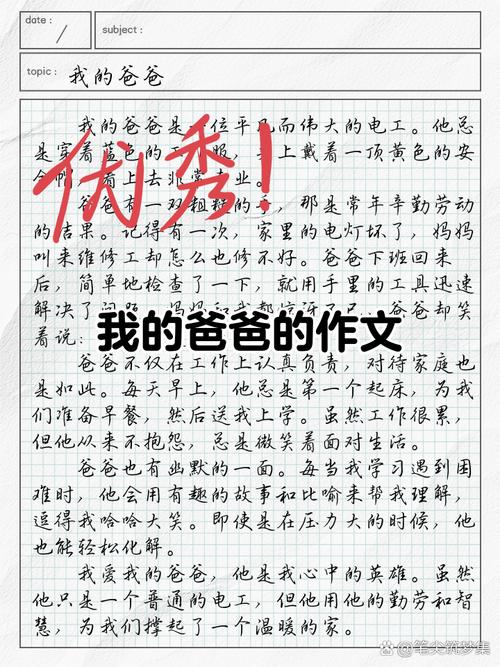 date :
subject :
topic : 我的爸爸
我的爸爸是一位平凡而伟大的电工。他总
是穿着蓝色的工 服，头上戴着一顶黄色的安
全帽，看上去非常专业。
优秀！
爸爸有一双粗糙的手，那是常年辛勤劳动
的结果。记得有一次，家里的电灯坏了，妈妈
叫来维修工却怎么也修不好。爸爸下班回来
后，简单地检查了一下，就用手里的工具迅速
解决了问题。妈妈和我都惊讶了 爸爸却笑
着说：
我的爸爸的作文
爸爸不仅在工作上认真负责，对待家庭也
是如此。每天早上，他总是第一个起床，为我
们准备早餐，然后送我上学。虽然工作很累，
但他从来不抱怨，总是微笑着面对生活。
爸爸也有幽默的一面。每当我学习遇到困
难时，他会用有趣的故事和比喻来帮我理解，
逗得我哈哈大笑。即使是在压力大的时候，他
也能轻松化解。
我爱我的爸爸，他是我心中的英雄。虽然
他只是一个普通的电工，但他用他的勤劳和智
慧，为我们撑起了一个温暖的家。
笔尖筑梦集